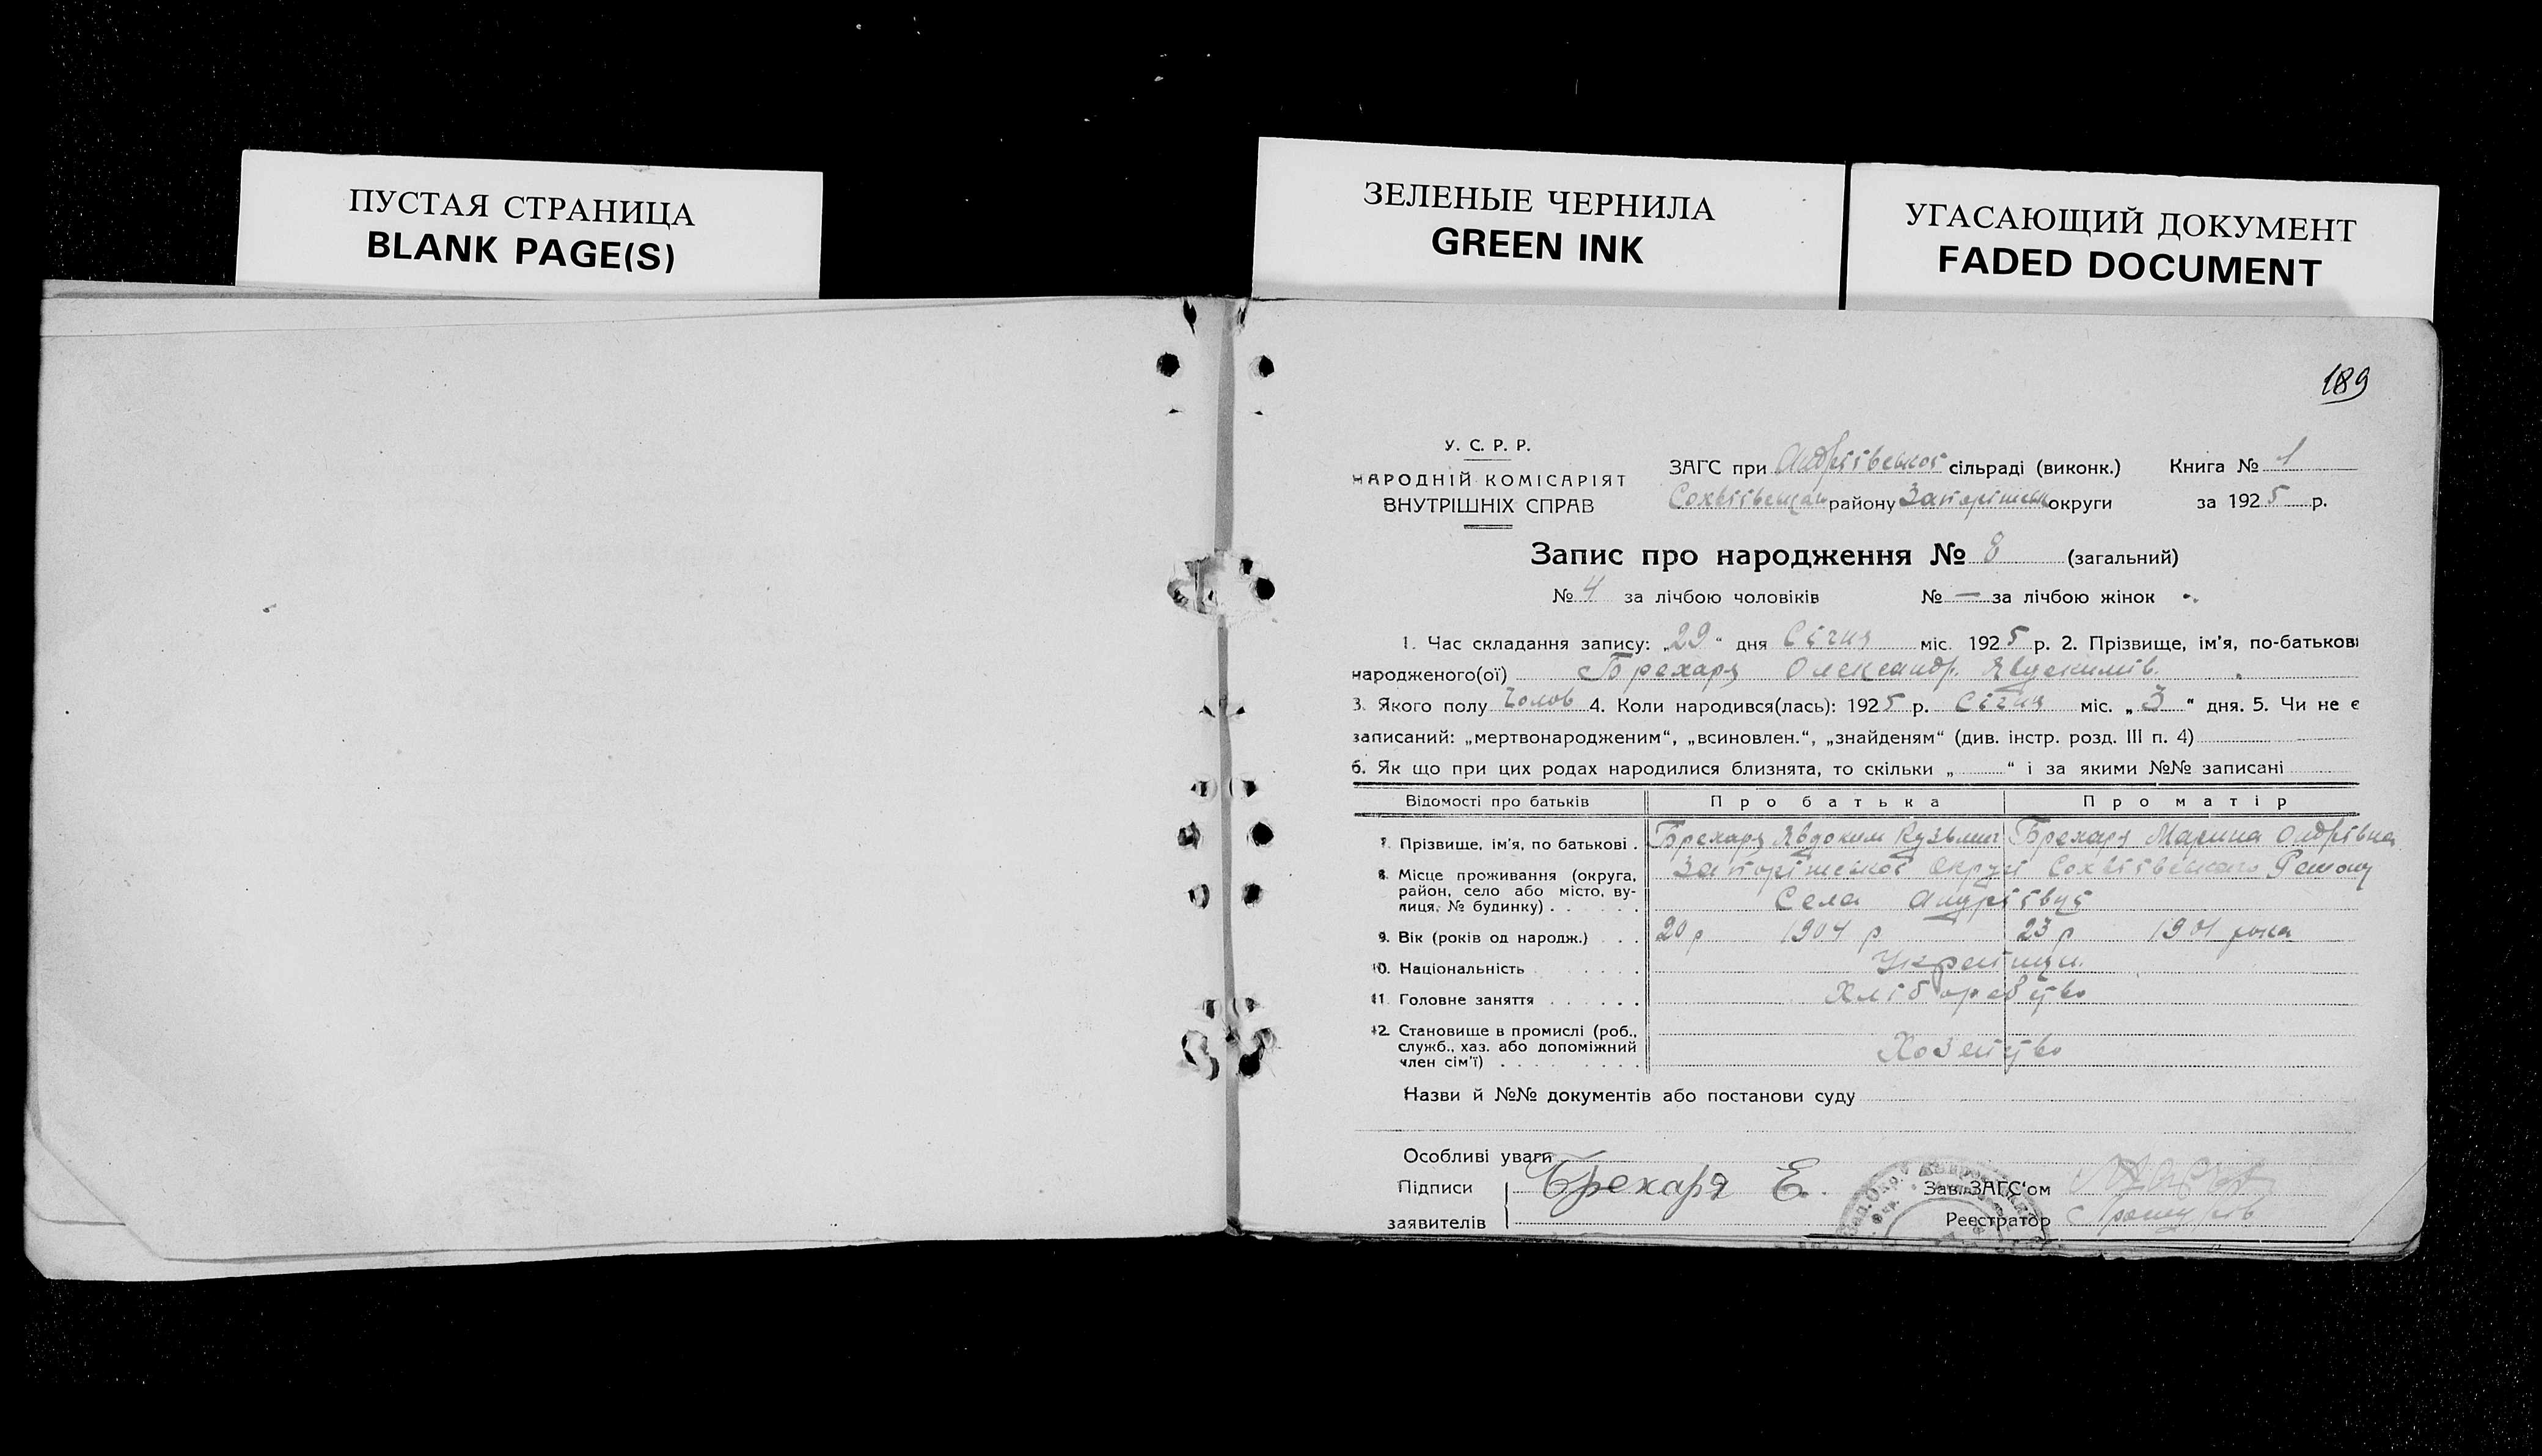 ПУСТАЯ СТРАНИЦА
BLANK PAGE(S)
ЗЕЛЕНЫЕ ЧЕРНИЛА
GREEN INK
УГАСАЮЩИЙ ДОКУМЕНТ
FADED DOCUMENT
189
У. С. Р. Р.
НАРОДНІЙ КОМІСАРІЯТ
ВНУТРІШНІХ СПРАВ
ЗАГС при Андріївської сільраді (виконк.) Книга № 1
району округи за 1925 р.
Запис про народження № 8 (загальний)
№ 4 за лічбою чоловіків № — за лічбою жінок
1. Час складання запису: „29“ дня Січня міс. 1925 р. 2. Прізвище, ім'я, по-батькові
народженого(ої) Брехаря Олександр.
3. Якого полу Чолов 4. Коли народився(лась): 1925 р. Січня міс. „3“ дня. 5. Чи не є
записаний: „мертвонародженим“, „всиновлен.“, „знайденям“ (див. інстр. розд. III п. 4)
6. Як що при цих родах народилися близнята, то скільки „ “ і за якими №№ записані
Відомості про батьків Про батька Про матір
7. Прізвище, ім'я, по батькові . Брехаря Явдоким Кузьмич Брехаря Марина Андрівна
8. Місце проживання (округа, Запоріжської округи
район, село або місто, ву-
лиця, № будинку) . . . . . Села Андріївці
9. Вік (років од народж.) . . . 20 р 1904 р 23 р 1901 рока
10. Національність
11. Головне заняття . . . . . . Хліборобство
12. Становище в промислі (роб.,
служб., хаз. або допоміжний
член сім'ї) . . . . . . . . .
Назви й №№ документів або постанови суду
Особливі уваги
Підписи Брехаря Е. Зав. ЗАГС'ом
заявителів Реєстратор